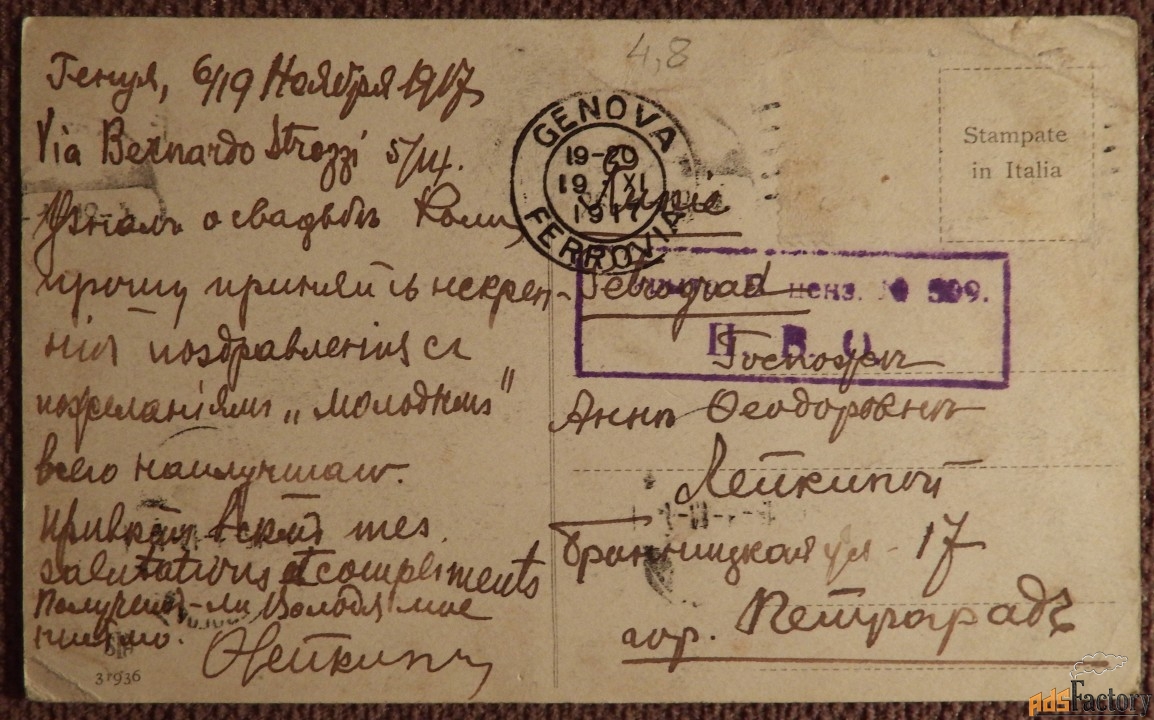 4,8
Генуя, 6/19 Ноября 1917
Via Bernardo Strozzi 5/14.
Узналъ о свадьбѣ Коли,
прошу принять искрен-
нія поздравленія съ
пожеланіями „молодымъ"
всего наилучшаго.
mes
salutations et compliments
Получено-ли Володей мое
письмо. Лейкинъ
31936
GENOVA
19-20
19 XI
1917
FERROVIA
Stampate
in Italia
Petrograd
ценз. № 509.
П. В. О.
Госпожѣ
Аннѣ Ѳеодоровнѣ
Лейкиной
ул - 17
гор. Петроградъ
AdsFactory